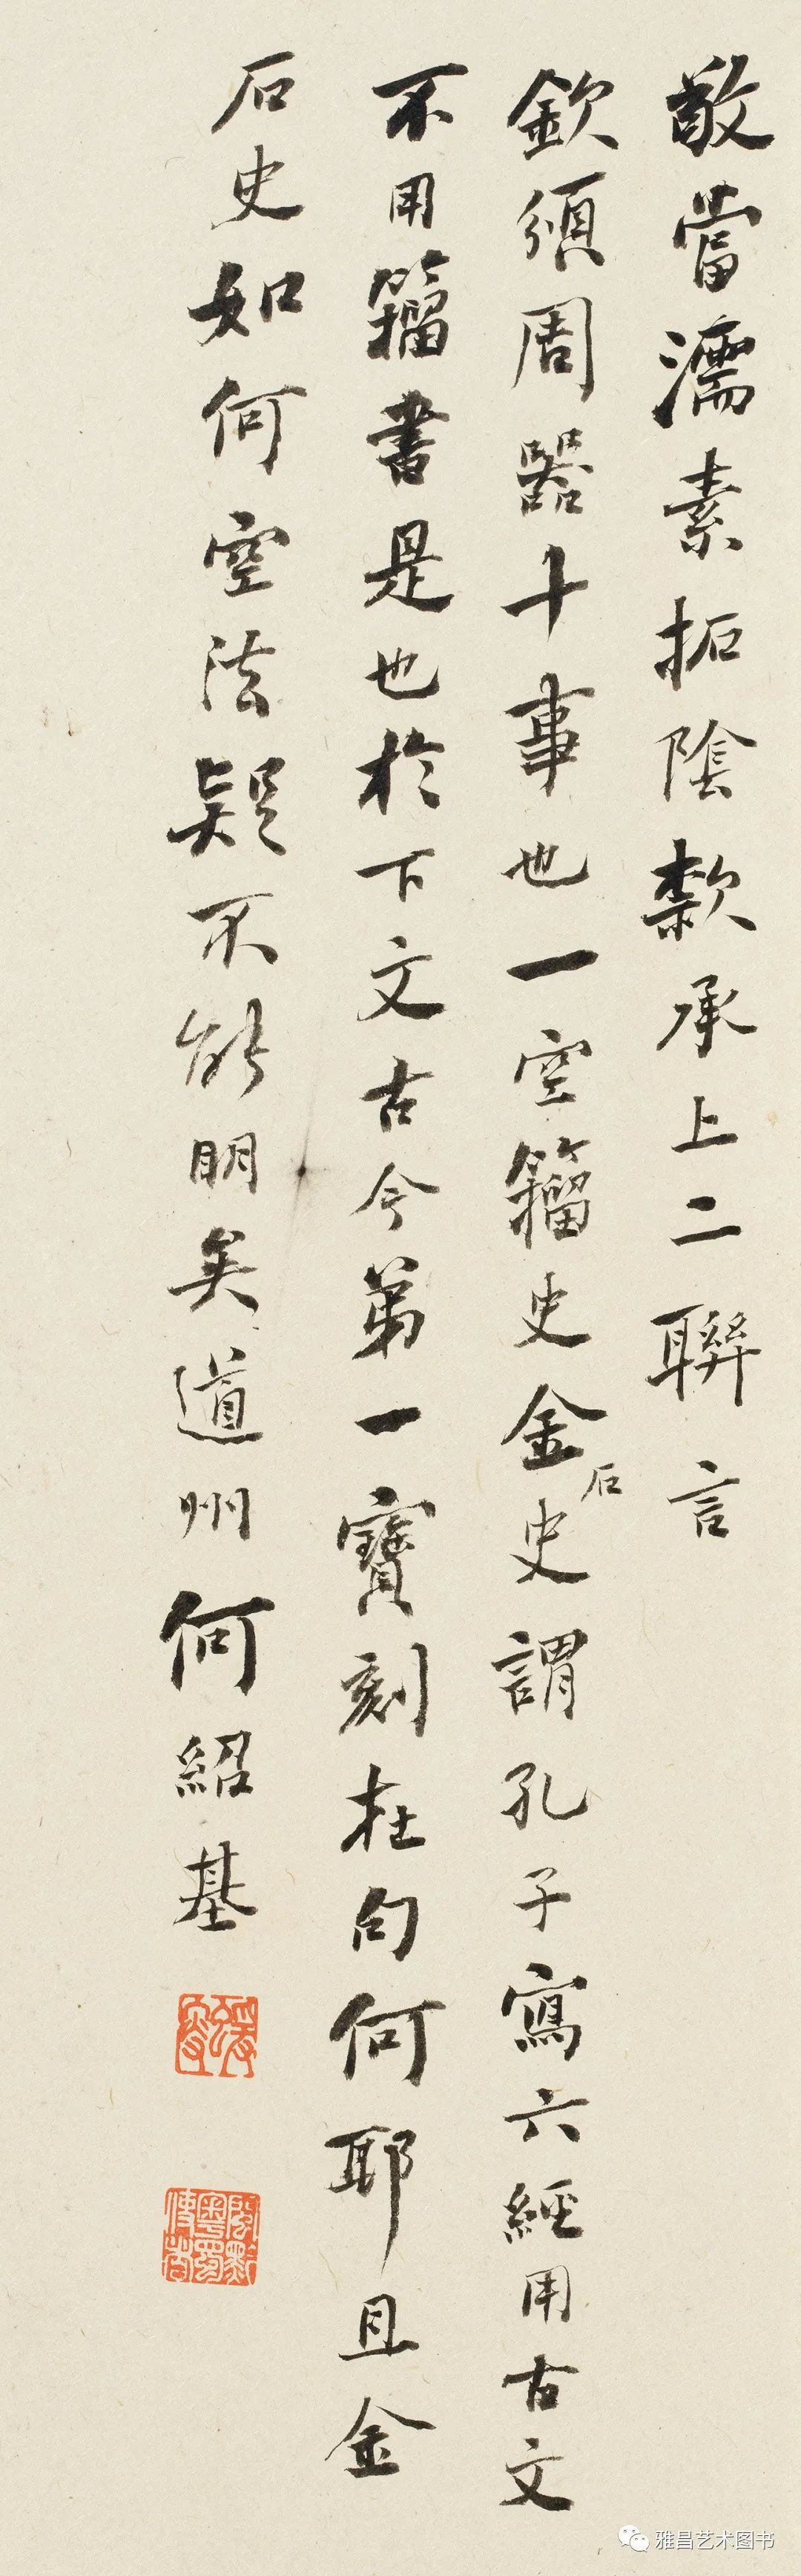 敢當濡素拓陰款承上二聯言
欽頒周器十事也一空籀史金石史謂孔子寫六經用古文
不用籀書是也於下文古今第一寶刻在句何耶且金
石史如何空法疑不能明矣道州何紹基
雅昌艺术图书